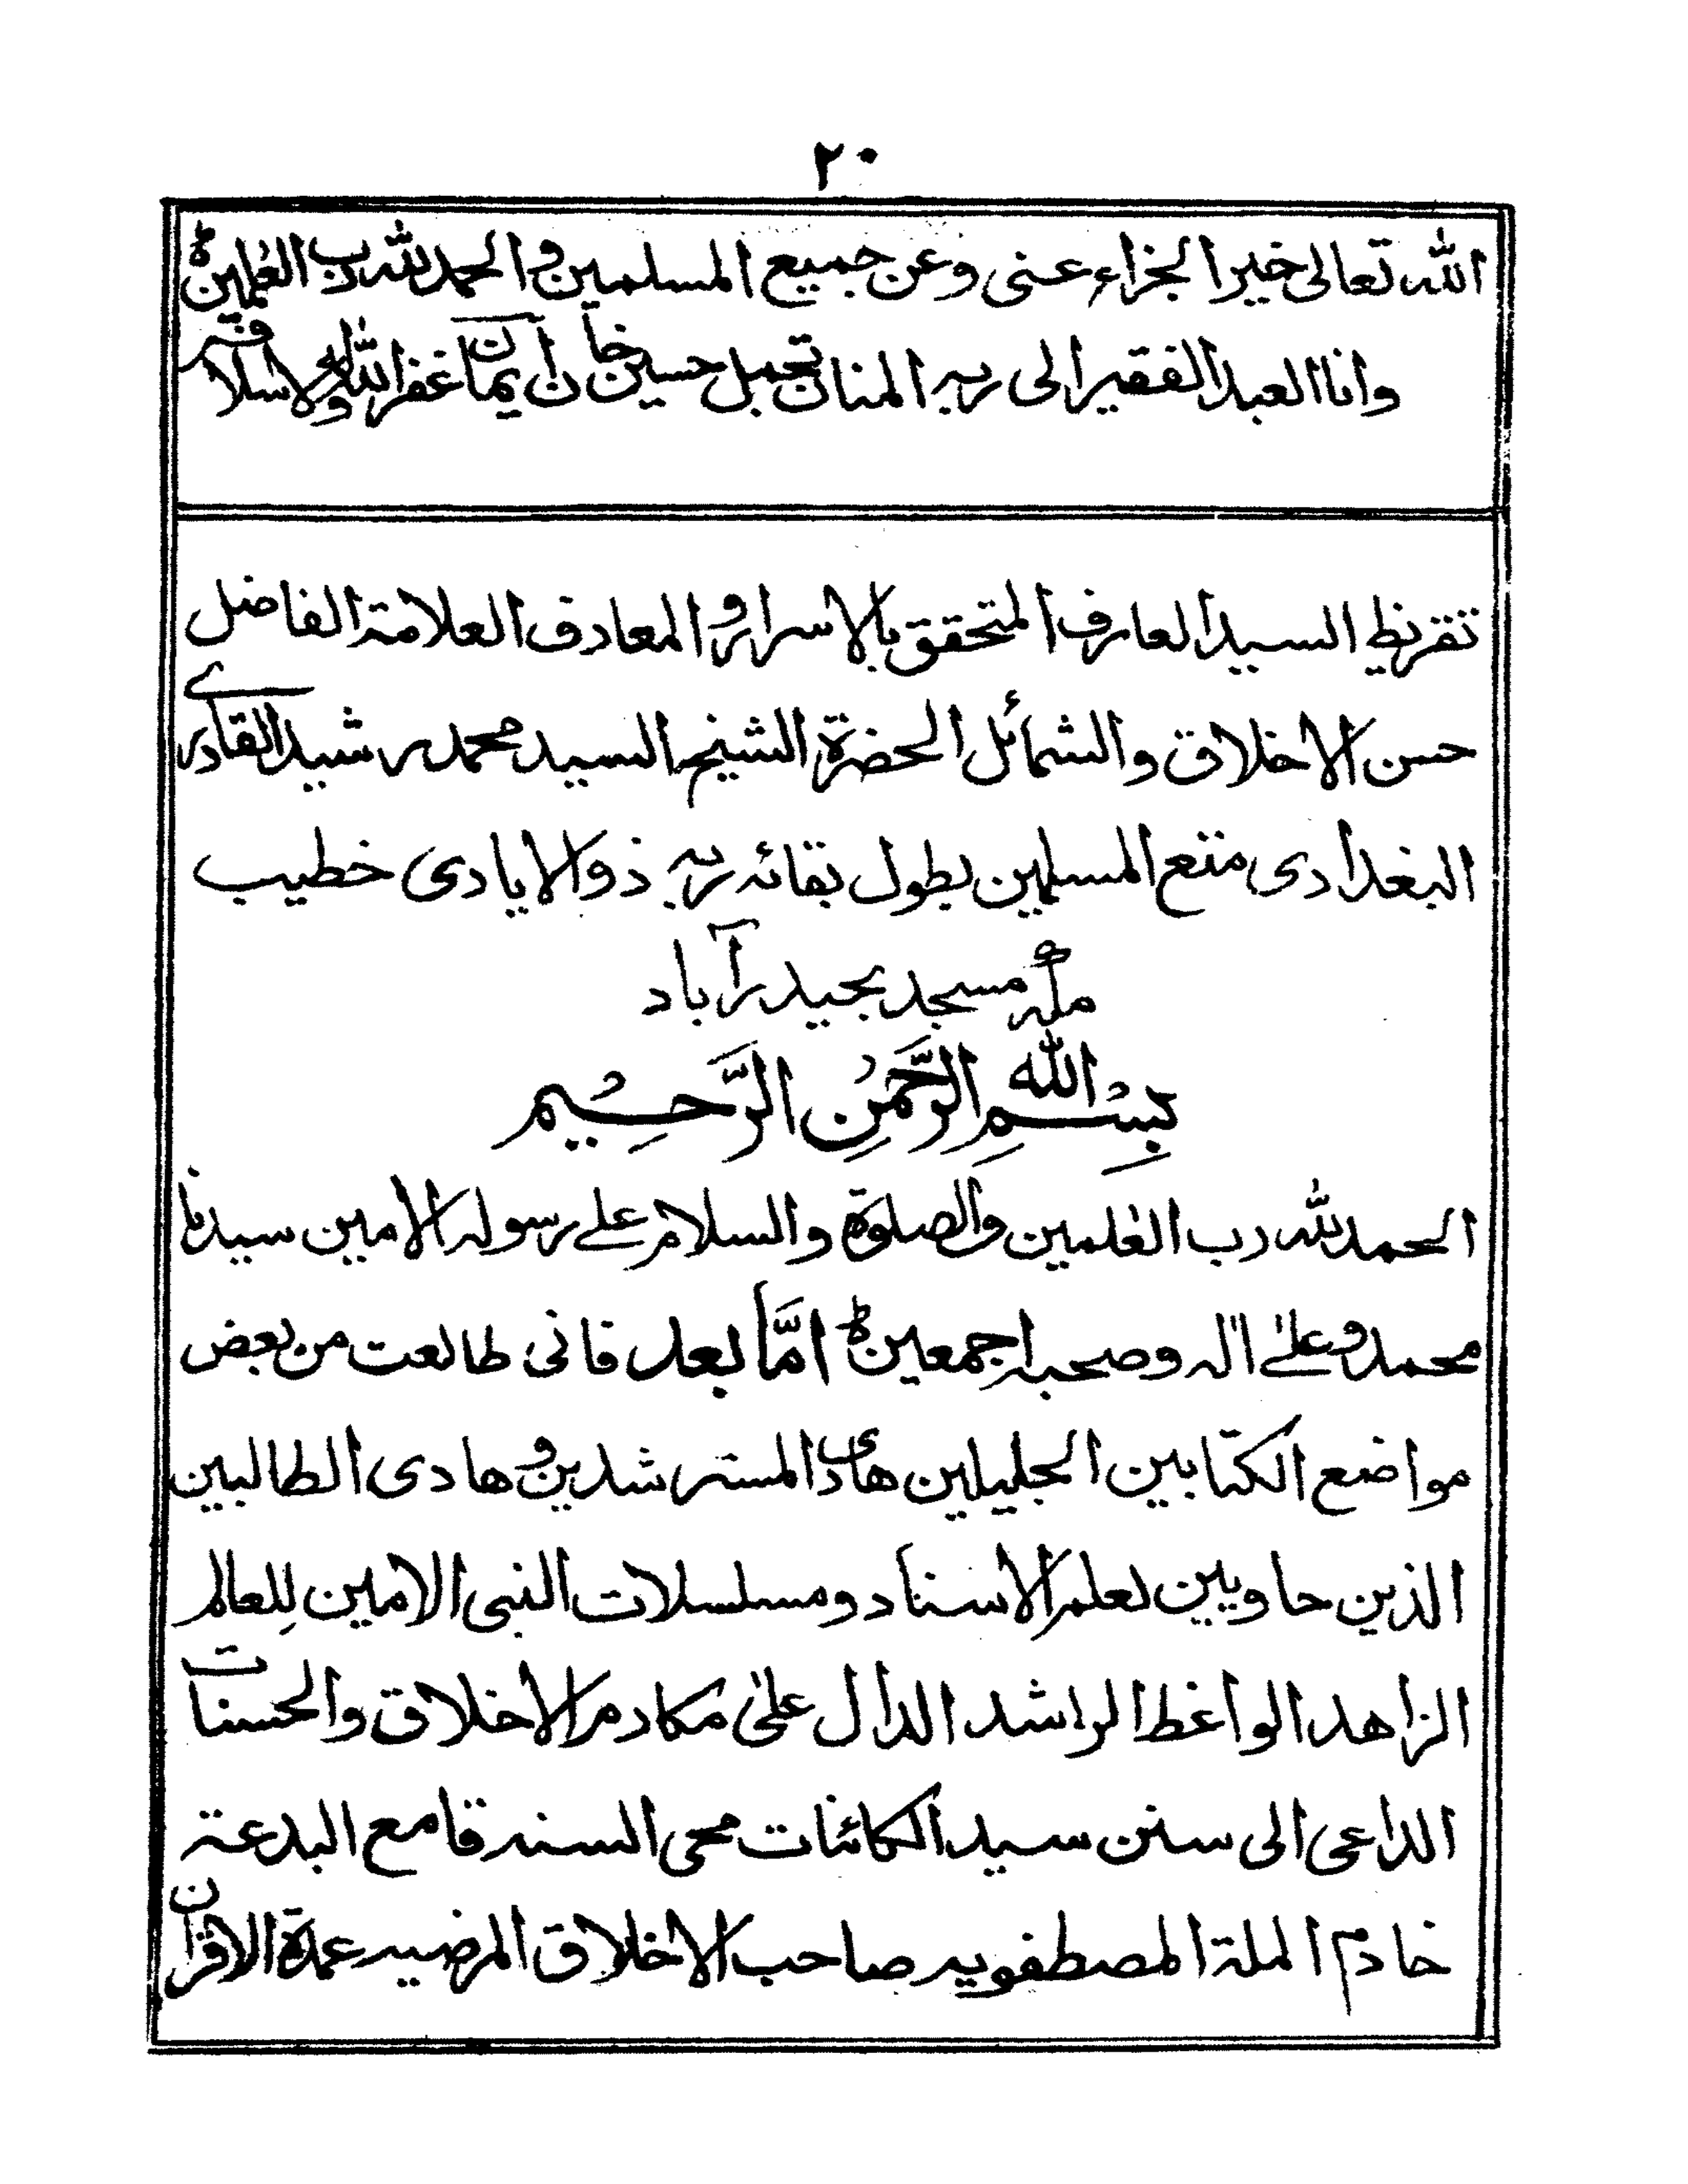 ٢٠
الله تعالى خير الجزاء عنى وعن جميع المسلمين و الحمد لله رب العٰلمين
وانا العبد الفقير الى ربه المنان تجمل حسين خان غفر الله له ولاسلافه
تقريظ السيد العارف المتحقق بالاسرار و المعارف العلامة الفاضل
حسن الاخلاق والشمائل الحضرة الشيخ السيد محمد رشيد القادرے
البغدادى متع المسلمين بطول بقائه ربه ذو الايادى خطيب
مكه مسجد بحيدرآباد
بِسْمِ اللهِ الرَّحْمٰنِ الرَّحِيْمِ
الحمد لله رب العٰلمين والصلوة والسلام علے رسوله الامين سيدنا
محمد وعلےٰ اٰله وصحبه اجمعين امَّا بعد فانى طالعت من بعض
مواضع الكتابين الجليلين هادى المسترشدين و هادى الطالبين
الذين حاويين لعلم الاسناد ومسلسلات النبى الامين لِلعالم
الزاهد الواعظ الراشد الدال علىٰ مكارم الاخلاق والحسنات
الداعى الى سنن سيد الكائنات محى السنه قامع البدعة
خادم الملة المصطفويه صاحب الاخلاق المرضيه عمدة الاقران